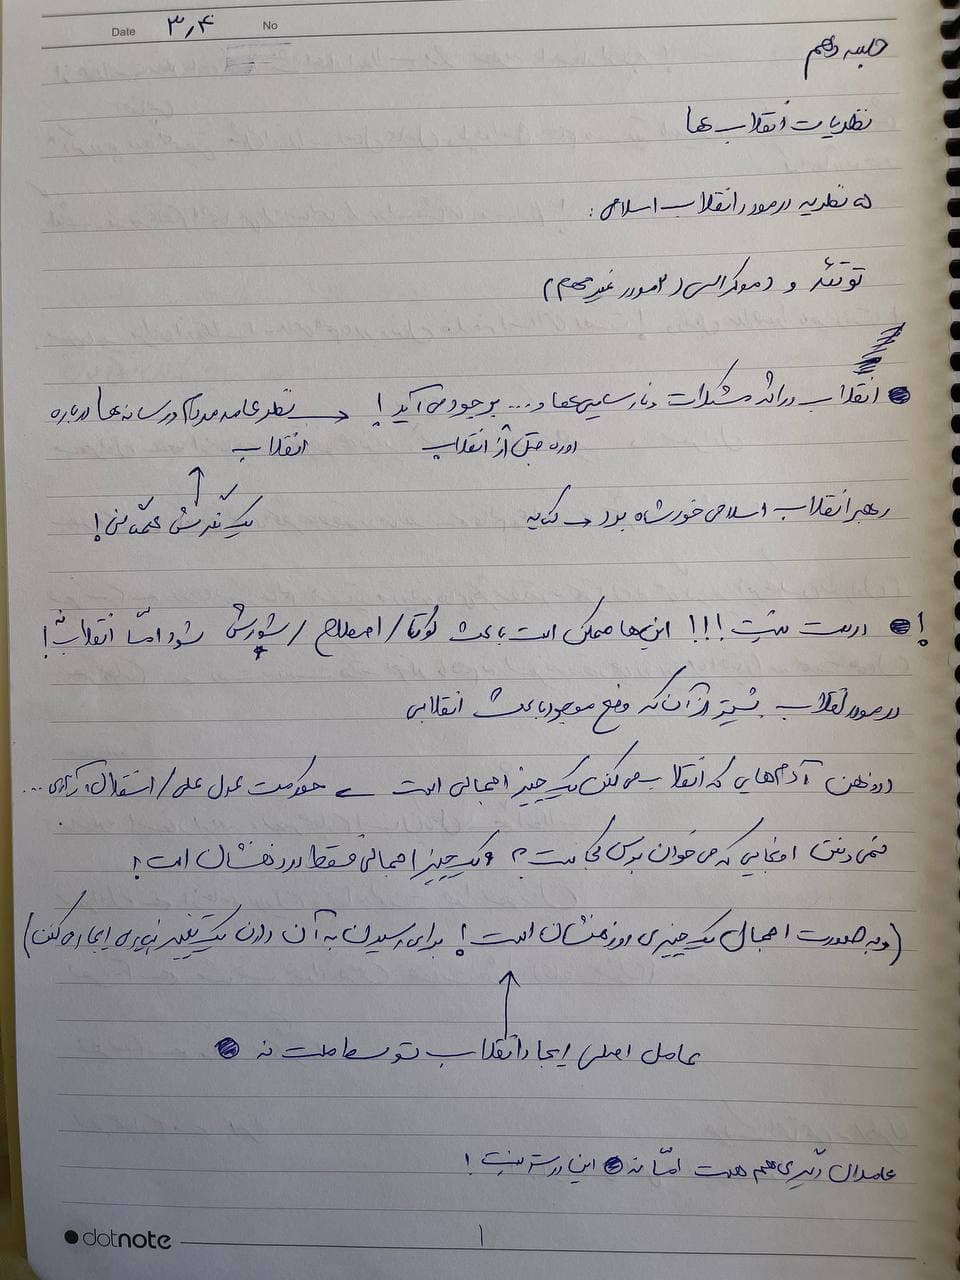 Date ۳,۴ No
جلسه دهم
نظریات انقلاب ها
۵ نظریه در مورد انقلاب اسلامی:
توطئه و دموکراسی (۲ مورد غیر مهم)
انقلاب در اثر مشکلات و نارسایی ها و... بوجود می آید! → نظر عامه مردم در رسانه ها درباره
دوره قبل از انقلاب
انقلاب
رهبر انقلاب اسلامی خود شاه بود → کنایه
یک نگرش عمومی!
! درست نیست!!! این ها ممکن است باعث کودتا / اصلاح / شورش شود امّا انقلاب نه!
در مورد انقلاب بیشتر از آن که وضع موجود باعث انقلابی
در ذهن آدم هایی که انقلاب می کنن یک چیز اجمالی است → حکومت عدل علی / استقلال، آزادی ...
نمی دونن اونجایی که می خوان برسن کجاست؟ و یک چیز اجمالی فقط در ذهنشان است!
(و به صورت اجمال یک چیزی در ذهنشان است! برای رسیدن به آن دارن یک تغییر ایجاد می کنن)
عامل اصلی ایجاد انقلاب توسط ملت نه
عاملان دیگری هم هست امّا نه این درست نیست!
dotnote
۱